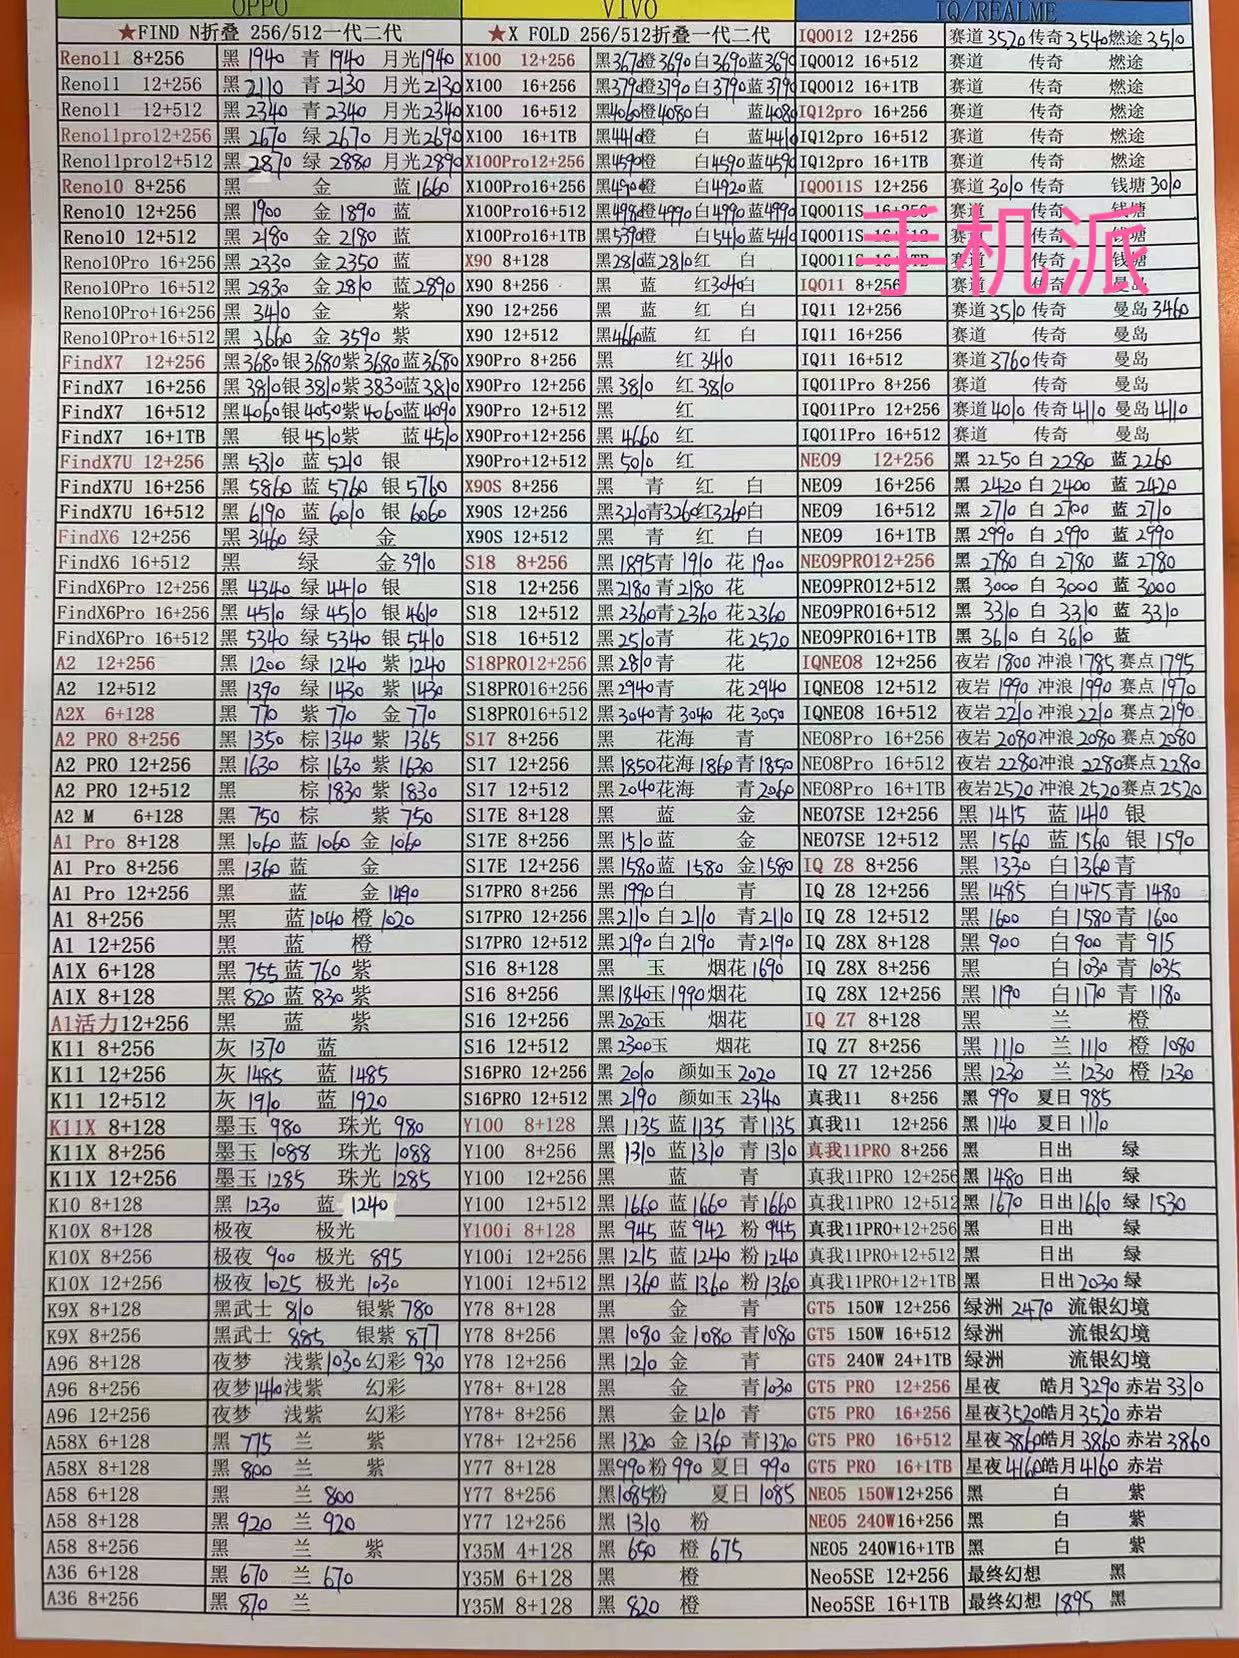 OPPO VIVO IQ/REALME
★FIND N折叠 256/512一代二代 ★X FOLD 256/512折叠一代二代 IQ0012 12+256 赛道3520传奇3540燃途3510
Reno11 8+256 黑 1940 青 1940 月光1940 X100 12+256 黑3670橙3690白3690蓝3690 IQ0012 16+512 赛道 传奇 燃途
Reno11 12+256 黑 2110 青 2130 月光2130 X100 16+256 黑3790橙3790白3790蓝3790 IQ0012 16+1TB 赛道 传奇 燃途
Reno11 12+512 黑 2340 青 2340 月光2340 X100 16+512 黑4060橙4080白 蓝4080 IQ12pro 16+256 赛道 传奇 燃途
Reno11pro12+256 黑 2670 绿 2670 月光2690 X100 16+1TB 黑4410橙 白 蓝4410 IQ12pro 16+512 赛道 传奇 燃途
Reno11pro12+512 黑 2870 绿 2880 月光2890 X100Pro12+256 黑4590橙 白4590蓝4590 IQ12pro 16+1TB 赛道 传奇 燃途
Reno10 8+256 黑 金 蓝1660 X100Pro16+256 黑4900橙 白4920蓝 IQ0011S 12+256 赛道3010传奇 钱塘3010
Reno10 12+256 黑 1900 金 1890 蓝 X100Pro16+512 黑4980橙4990白4990蓝4990 IQ0011S 16+256 赛道 传奇 钱塘
Reno10 12+512 黑 2180 金 2180 蓝 X100Pro16+1TB 黑5390橙 白5410蓝5410 IQ0011S 赛道 传奇 钱塘
Reno10Pro 16+256 黑 2330 金 2350 蓝 X90 8+128 黑2810蓝2810红 白 IQ0011S 赛道 传奇 钱塘
手机派
Reno10Pro 16+512 黑 2830 金 2810 蓝 2890 X90 8+256 黑 蓝 红3040白 IQ011 8+256 赛道 传奇 曼岛
Reno10Pro+16+256 黑 3410 金 紫 X90 12+256 黑 蓝 红 白 IQ11 12+256 赛道3510传奇 曼岛3460
Reno10Pro+16+512 黑 3660 金 3590 紫 X90 12+512 黑4660蓝 红 白 IQ11 16+256 赛道 传奇 曼岛
FindX7 12+256 黑3680银3680紫3680蓝3680 X90Pro 8+256 黑 红 3410 IQ11 16+512 赛道3760传奇 曼岛
FindX7 16+256 黑3810银3810紫3830蓝3810 X90Pro 12+256 黑 3810 红 3810 IQ011Pro 8+256 赛道 传奇 曼岛
FindX7 16+512 黑4060银4050紫4060蓝4090 X90Pro 12+512 黑 红 IQ011Pro 12+256 赛道4010传奇4110曼岛4110
FindX7 16+1TB 黑 银4510紫 蓝4510 X90Pro+12+256 黑 4660 红 IQ011Pro 16+512 赛道 传奇 曼岛
FindX7U 12+256 黑 5310 蓝 5210 银 X90Pro+12+512 黑 5010 红 NEO9 12+256 黑 2250 白 2280 蓝 2260
FindX7U 16+256 黑 5860 蓝 5760 银 5760 X90S 8+256 黑 青 红 白 NEO9 16+256 黑 2420 白 2400 蓝 2420
FindX7U 16+512 黑 6190 蓝 6010 银 6060 X90S 12+256 黑3210青3260红3260白 NEO9 16+512 黑 2710 白 2700 蓝 2710
FindX6 12+256 黑 3460 绿 金 X90S 12+512 黑 青 红 白 NEO9 16+1TB 黑 2990 白 2990 蓝 2990
FindX6 16+512 黑 绿 金3910 S18 8+256 黑1895青1910 花1900 NEO9PRO12+256 黑 2780 白 2780 蓝 2780
FindX6Pro 12+256 黑 4340 绿 4410 银 S18 12+256 黑2180青2180 花 NEO9PRO12+512 黑 3000 白 3000 蓝 3000
FindX6Pro 16+256 黑 4510 绿 4510 银 4610 S18 12+512 黑2360青2360 花2360 NEO9PRO16+512 黑 3310 白 3310 蓝 3310
FindX6Pro 16+512 黑 5340 绿 5340 银 5410 S18 16+512 黑2510青 花2520 NEO9PRO16+1TB 黑 3610 白 3610 蓝
A2 12+256 黑 1200 绿 1240 紫 1240 S18PRO12+256 黑2810青 花 IQNEO8 12+256 夜岩1800冲浪1785赛点1795
A2 12+512 黑 1390 绿 1430 紫 1430 S18PRO16+256 黑2940青 花2940 IQNEO8 12+512 夜岩1990冲浪1990赛点1970
A2X 6+128 黑 770 紫 770 金 770 S18PRO16+512 黑3040青3040 花3050 IQNEO8 16+512 夜岩2210冲浪2210赛点2190
A2 PRO 8+256 黑 1350 棕 1340 紫 1365 S17 8+256 黑 花海 青 NEO8Pro 16+256 夜岩2080冲浪2080赛点2080
A2 PRO 12+256 黑 1630 棕 1630 紫 1630 S17 12+256 黑1850花海1860青1850 NEO8Pro 16+512 夜岩2280冲浪2280赛点2280
A2 PRO 12+512 黑 棕 1830 紫 1830 S17 12+512 黑2040花海 青2060 NEO8Pro 16+1TB 夜岩2520冲浪2520赛点2520
A2 M 6+128 黑 750 棕 紫 750 S17E 8+128 黑 蓝 金 NEO7SE 12+256 黑 1415 蓝 1410 银
A1 Pro 8+128 黑 1060 蓝 1060 金 1060 S17E 8+256 黑1510蓝 金 NEO7SE 12+512 黑 1560 蓝 1560 银 1590
A1 Pro 8+256 黑 1360 蓝 金 S17E 12+256 黑1580蓝 1580 金1580 IQ Z8 8+256 黑 1330 白1360青
A1 Pro 12+256 黑 蓝 金1490 S17PRO 8+256 黑1990白 青 IQ Z8 12+256 黑 1485 白1475青 1480
A1 8+256 黑 蓝1040 橙 1020 S17PRO 12+256 黑2110 白 2110 青2110 IQ Z8 12+512 黑 1600 白1580青 1600
A1 12+256 黑 蓝 橙 S17PRO 12+512 黑2190 白 2190 青2190 IQ Z8X 8+128 黑 900 白900 青 915
A1X 6+128 黑 755 蓝 760 紫 S16 8+128 黑 玉 烟花1690 IQ Z8X 8+256 黑 白1030 青 1035
A1X 8+128 黑 820 蓝 830 紫 S16 8+256 黑1840玉1990烟花 IQ Z8X 12+256 黑 1190 白1170 青 1180
A1活力12+256 黑 蓝 紫 S16 12+256 黑2020玉 烟花 IQ Z7 8+128 黑 兰 橙
K11 8+256 灰 1370 蓝 S16 12+512 黑2300玉 烟花 IQ Z7 8+256 黑 1110 兰 1110 橙 1080
K11 12+256 灰 1485 蓝 1485 S16PRO 12+256 黑 2010 颜如玉 2020 IQ Z7 12+256 黑 1230 兰 1230 橙 1230
K11 12+512 灰 1910 蓝 1920 S16PRO 12+512 黑 2190 颜如玉 2340 真我11 8+256 黑 990 夏日 985
K11X 8+128 墨玉 980 珠光 980 Y100 8+128 黑 1135 蓝1135 青1135 真我11 12+256 黑 1140 夏日 1110
K11X 8+256 墨玉 1088 珠光 1088 Y100 8+256 黑 1310 蓝1310 青1310 真我11PRO 8+256 黑 日出 绿
K11X 12+256 墨玉 1285 珠光 1285 Y100 12+256 黑 蓝 青 真我11PRO 12+256 黑 1480 日出 绿
K10 8+128 黑 1230 蓝 1240 Y100 12+512 黑 1660 蓝1660 青1660 真我11PRO 12+512 黑 1670 日出1610 绿 1530
K10X 8+128 极夜 极光 Y100i 8+128 黑 945 蓝 942 粉 945 真我11PRO+12+256 黑 日出 绿
K10X 8+256 极夜 900 极光 895 Y100i 12+256 黑 1215 蓝1240 粉1240 真我11PRO+12+512 黑 日出 绿
K10X 12+256 极夜 1025 极光 1030 Y100i 12+512 黑 1360 蓝1360 粉1360 真我11PRO+12+1TB 黑 日出2030 绿
K9X 8+128 黑武士 810 银紫 780 Y78 8+128 黑 金 青 GT5 150W 12+256 绿洲 2470 流银幻境
K9X 8+256 黑武士 885 银紫 877 Y78 8+256 黑 1080 金1080 青1080 GT5 150W 16+512 绿洲 流银幻境
A96 8+128 夜梦 浅紫1030 幻彩 930 Y78 12+256 黑 1210 金 青 GT5 240W 24+1TB 绿洲 流银幻境
A96 8+256 夜梦1410浅紫 幻彩 Y78+ 8+128 黑 金 青1030 GT5 PRO 12+256 星夜 皓月3290赤岩3310
A96 12+256 夜梦 浅紫 幻彩 Y78+ 8+256 黑 金1210 青 GT5 PRO 16+256 星夜3520皓月3520 赤岩
A58X 6+128 黑 775 兰 紫 Y78+ 12+256 黑 1320 金 1360 青1320 GT5 PRO 16+512 星夜3860皓月3860 赤岩3860
A58X 8+128 黑 800 兰 紫 Y77 8+128 黑990粉 990 夏日 990 GT5 PRO 16+1TB 星夜4160皓月4160 赤岩
A58 6+128 黑 兰 800 Y77 8+256 黑1085粉 夏日 1085 NEO5 150W12+256 黑 白 紫
A58 8+128 黑 920 兰 920 Y77 12+256 黑 1310 粉 NEO5 240W16+256 黑 白 紫
A58 8+256 黑 兰 紫 Y35M 4+128 黑 650 橙 675 NEO5 240W16+1TB 黑 白 紫
A36 6+128 黑 670 兰 670 Y35M 6+128 黑 橙 Neo5SE 12+256 最终幻想 黑
A36 8+256 黑 810 兰 Y35M 8+128 黑 820 橙 Neo5SE 16+1TB 最终幻想 1895 黑